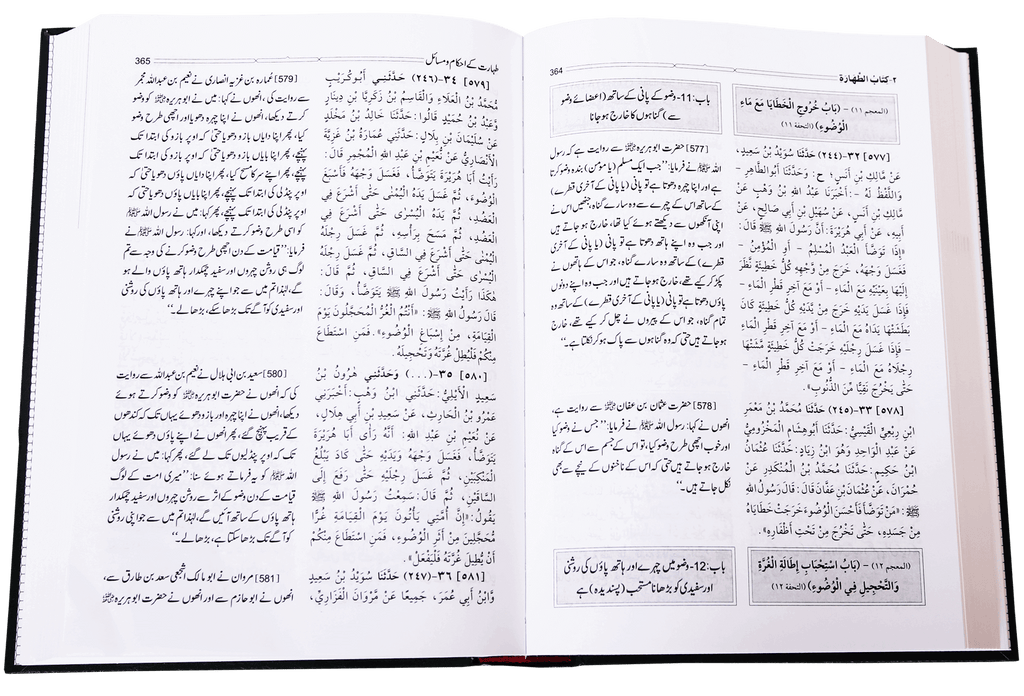 ٢-كتاب الطهارة
364
(المعجم ١١) - (بَابُ خُرُوجِ الْخَطَايَا مَعَ مَاءِ
الْوُضُوءِ) (التحفة ١١)
[٥٧٧] ٣٢-(٢٤٤) حَدَّثَنَا سُوَيْدُ بْنُ سَعِيدٍ،
عَنْ مَالِكِ بْنِ أَنَسٍ، ح: وَحَدَّثَنَا أَبُو الطَّاهِرِ -
وَاللَّفْظُ لَهُ -: أَخْبَرَنَا عَبْدُ اللهِ بْنُ وَهْبٍ عَنْ
مَالِكِ بْنِ أَنَسٍ، عَنْ سُهَيْلِ بْنِ أَبِي صَالِحٍ، عَنْ
أَبِيهِ، عَنْ أَبِي هُرَيْرَةَ: أَنَّ رَسُولَ اللهِ ﷺ قَالَ:
«إِذَا تَوَضَّأَ الْعَبْدُ الْمُسْلِمُ - أَوِ الْمُؤْمِنُ -
فَغَسَلَ وَجْهَهُ، خَرَجَ مِنْ وَجْهِهِ كُلُّ خَطِيئَةٍ نَظَرَ
إِلَيْهَا بِعَيْنَيْهِ مَعَ الْمَاءِ - أَوْ مَعَ آخِرِ قَطْرِ الْمَاءِ -
فَإِذَا غَسَلَ يَدَيْهِ خَرَجَ مِنْ يَدَيْهِ كُلُّ خَطِيئَةٍ كَانَ
بَطَشَتْهَا يَدَاهُ مَعَ الْمَاءِ - أَوْ مَعَ آخِرِ قَطْرِ الْمَاءِ
- فَإِذَا غَسَلَ رِجْلَيْهِ خَرَجَتْ كُلُّ خَطِيئَةٍ مَشَتْهَا
رِجْلَاهُ مَعَ الْمَاءِ - أَوْ مَعَ آخِرِ قَطْرِ الْمَاءِ -
حَتَّى يَخْرُجَ نَقِيًّا مِنَ الذُّنُوبِ».
[٥٧٨] ٣٣-(٢٤٥) حَدَّثَنَا مُحَمَّدُ بْنُ مَعْمَرِ
ابْنِ رِبْعِيٍّ الْقَيْسِيُّ: حَدَّثَنَا أَبُو هِشَامٍ الْمَخْزُومِيُّ
عَنْ عَبْدِ الْوَاحِدِ وَهُوَ ابْنُ زِيَادٍ: حَدَّثَنَا عُثْمَانُ
ابْنُ حَكِيمٍ: حَدَّثَنَا مُحَمَّدُ بْنُ الْمُنْكَدِرِ عَنْ
حُمْرَانَ، عَنْ عُثْمَانَ بْنِ عَفَّانَ قَالَ: قَالَ رَسُولُ اللهِ
ﷺ: «مَنْ تَوَضَّأَ فَأَحْسَنَ الْوُضُوءَ خَرَجَتْ خَطَايَاهُ
مِنْ جَسَدِهِ، حَتَّى تَخْرُجَ مِنْ تَحْتِ أَظْفَارِهِ».
(المعجم ١٢) - (بَابُ اسْتِحْبَابِ إِطَالَةِ الْغُرَّةِ
وَالتَّحْجِيلِ فِي الْوُضُوءِ) (التحفة ١٢)
باب: 11- وضو کے پانی کے ساتھ (اعضائے وضو
سے) گناہوں کا خارج ہو جانا
[577] حضرت ابو ہریرہ ؓ سے روایت ہے کہ رسول
اللہ ﷺ نے فرمایا: ’’جب ایک مسلم (یا مومن) بندہ وضو کرتا
ہے اور اپنا چہرہ دھوتا ہے تو پانی (یا پانی کے آخری قطرے)
کے ساتھ اس کے چہرے سے وہ سارے گناہ، جنھیں اس نے
اپنی آنکھوں سے دیکھتے ہوئے کیا تھا، خارج ہو جاتے ہیں
اور جب وہ اپنے ہاتھ دھوتا ہے تو پانی (یا پانی کے آخری
قطرے) کے ساتھ وہ سارے گناہ، جو اس کے ہاتھوں نے
پکڑ کر کیے تھے، خارج ہو جاتے ہیں اور جب وہ اپنے دونوں
پاؤں دھوتا ہے تو پانی (یا پانی کے آخری قطرے) کے ساتھ وہ
تمام گناہ، جو اس کے پیروں نے چل کر کیے تھے، خارج
ہو جاتے ہیں حتی کہ وہ گناہوں سے پاک ہو کر نکلتا ہے۔‘‘
[578] حضرت عثمان بن عفان ؓ سے روایت ہے،
انھوں نے کہا: رسول اللہ ﷺ نے فرمایا: ’’جس نے وضو کیا
اور خوب اچھی طرح وضو کیا، تو اس کے جسم سے اس کے گناہ
خارج ہو جاتے ہیں حتی کہ اس کے ناخنوں کے نیچے سے بھی
نکل جاتے ہیں۔‘‘
باب: 12- وضو میں چہرے اور ہاتھ پاؤں کی روشنی
اور سفیدی کو بڑھانا مستحب (پسندیدہ) ہے
طہارت کے احکام و مسائل
365
[٥٧٩] ٣٤-(٢٤٦) حَدَّثَنِي أَبُو كُرَيْبٍ
مُحَمَّدُ بْنُ الْعَلَاءِ وَالْقَاسِمُ بْنُ زَكَرِيَّا بْنِ دِينَارٍ
وَعَبْدُ بْنُ حُمَيْدٍ قَالُوا: حَدَّثَنَا خَالِدُ بْنُ مَخْلَدٍ
عَنْ سُلَيْمَانَ بْنِ بِلَالٍ: حَدَّثَنِي عُمَارَةُ بْنُ غَزِيَّةَ
الْأَنْصَارِيُّ عَنْ نُعَيْمِ بْنِ عَبْدِ اللهِ الْمُجْمِرِ قَالَ:
رَأَيْتُ أَبَا هُرَيْرَةَ يَتَوَضَّأُ، فَغَسَلَ وَجْهَهُ فَأَسْبَغَ
الْوُضُوءَ، ثُمَّ غَسَلَ يَدَهُ الْيُمْنَى حَتَّى أَشْرَعَ فِي
الْعَضُدِ، ثُمَّ يَدَهُ الْيُسْرَى حَتَّى أَشْرَعَ فِي
الْعَضُدِ، ثُمَّ مَسَحَ بِرَأْسِهِ، ثُمَّ غَسَلَ رِجْلَهُ
الْيُمْنَى حَتَّى أَشْرَعَ فِي السَّاقِ، ثُمَّ غَسَلَ رِجْلَهُ
الْيُسْرَى حَتَّى أَشْرَعَ فِي السَّاقِ، ثُمَّ قَالَ:
هَكَذَا رَأَيْتُ رَسُولَ اللهِ ﷺ يَتَوَضَّأُ، وَقَالَ:
قَالَ رَسُولُ اللهِ ﷺ: «أَنْتُمُ الْغُرُّ الْمُحَجَّلُونَ يَوْمَ
الْقِيَامَةِ، مِنْ إِسْبَاغِ الْوُضُوءِ». فَمَنِ اسْتَطَاعَ
مِنْكُمْ فَلْيُطِلْ غُرَّتَهُ وَتَحْجِيلَهُ.
[٥٨٠] ٣٥-(...) وَحَدَّثَنِي هَرُونُ بْنُ
سَعِيدٍ الْأَيْلِيُّ: حَدَّثَنِي ابْنُ وَهْبٍ: أَخْبَرَنِي
عَمْرُو بْنُ الْحَارِثِ، عَنْ سَعِيدِ بْنِ أَبِي هِلَالٍ،
عَنْ نُعَيْمِ بْنِ عَبْدِ اللهِ: أَنَّهُ رَأَى أَبَا هُرَيْرَةَ
يَتَوَضَّأُ، فَغَسَلَ وَجْهَهُ وَيَدَيْهِ حَتَّى كَادَ يَبْلُغُ
الْمَنْكِبَيْنِ، ثُمَّ غَسَلَ رِجْلَيْهِ حَتَّى رَفَعَ إِلَى
السَّاقَيْنِ، ثُمَّ قَالَ: سَمِعْتُ رَسُولَ اللهِ ﷺ
يَقُولُ: «إِنَّ أُمَّتِي يَأْتُونَ يَوْمَ الْقِيَامَةِ غُرًّا
مُحَجَّلِينَ مِنْ أَثَرِ الْوُضُوءِ، فَمَنِ اسْتَطَاعَ مِنْكُمْ
أَنْ يُطِيلَ غُرَّتَهُ فَلْيَفْعَلْ».
[٥٨١] ٣٦-(٢٤٧) حَدَّثَنَا سُوَيْدُ بْنُ سَعِيدٍ
وَابْنُ أَبِي عُمَرَ، جَمِيعًا عَنْ مَرْوَانَ الْفَزَارِيِّ،
[579] عمارہ بن غزیہ انصاری نے نعیم بن عبداللہ مجمر
سے روایت کی، انھوں نے کہا: میں نے ابو ہریرہ ؓ کو وضو
کرتے دیکھا، انھوں نے اپنا چہرہ دھویا اور اچھی طرح وضو
کیا، پھر اپنا دایاں بازو دھویا حتی کہ اوپر بازو کی ابتدا تک
پہنچے، پھر اپنا بایاں بازو دھویا حتی کہ اوپر بازو کی ابتدا تک
پہنچے، پھر اپنے سر کا مسح کیا، پھر اپنا دایاں پاؤں دھویا حتی کہ
اوپر پنڈلی کی ابتدا تک پہنچے، پھر اپنا بایاں پاؤں دھویا حتی کہ
اوپر پنڈلی کی ابتدا تک پہنچے، پھر کہا: میں نے رسول اللہ ﷺ
کو اسی طرح وضو کرتے دیکھا، اور کہا: رسول اللہ ﷺ نے
فرمایا: ’’قیامت کے دن اچھی طرح وضو کرنے کی وجہ سے تم
لوگ ہی روشن چہروں اور سفید چمکدار ہاتھ پاؤں والے ہو
گے، لہٰذا تم میں سے جو اپنے چہرے اور ہاتھ پاؤں کی روشنی
اور سفیدی کو آگے تک بڑھا سکے، بڑھا لے۔‘‘
[580] سعید بن ابی ہلال نے نعیم بن عبداللہ سے روایت
کی کہ انھوں نے حضرت ابو ہریرہ ؓ کو وضو کرتے ہوئے
دیکھا، انھوں نے اپنا چہرہ اور بازو دھوئے یہاں تک کہ کندھوں
کے قریب پہنچ گئے، پھر انھوں نے اپنے پاؤں دھوئے یہاں
تک کہ اوپر پنڈلیوں تک لے گئے، پھر کہا: میں نے رسول
اللہ ﷺ کو یہ فرماتے ہوئے سنا: ’’میری امت کے لوگ
قیامت کے دن وضو کے اثر سے روشن چہروں اور سفید چمکدار
ہاتھ پاؤں کے ساتھ آئیں گے، لہٰذا تم میں سے جو اپنی روشنی
کو آگے تک بڑھا سکتا ہے، بڑھا لے۔‘‘
[581] مروان نے ابو مالک اشجعی سعد بن طارق سے،
انھوں نے ابو حازم سے اور انھوں نے حضرت ابو ہریرہ ؓ